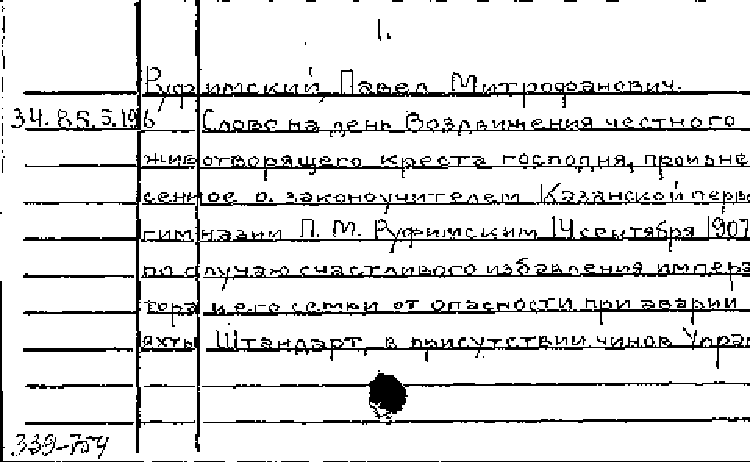 1.
Руфимский, Павел Митрофанович.
34.85.5.196 Слово на день Воздвижения честного
животворящего креста господня, произне
сенное о. законоучителем Казанской перв
гимназии П. М. Руфимским 14 сентября 1907
по случаю счастливого избавления импера
тора и его семьи от опасности при аварии
яхты Штандарт, в присутствии чинов Управ
339-754